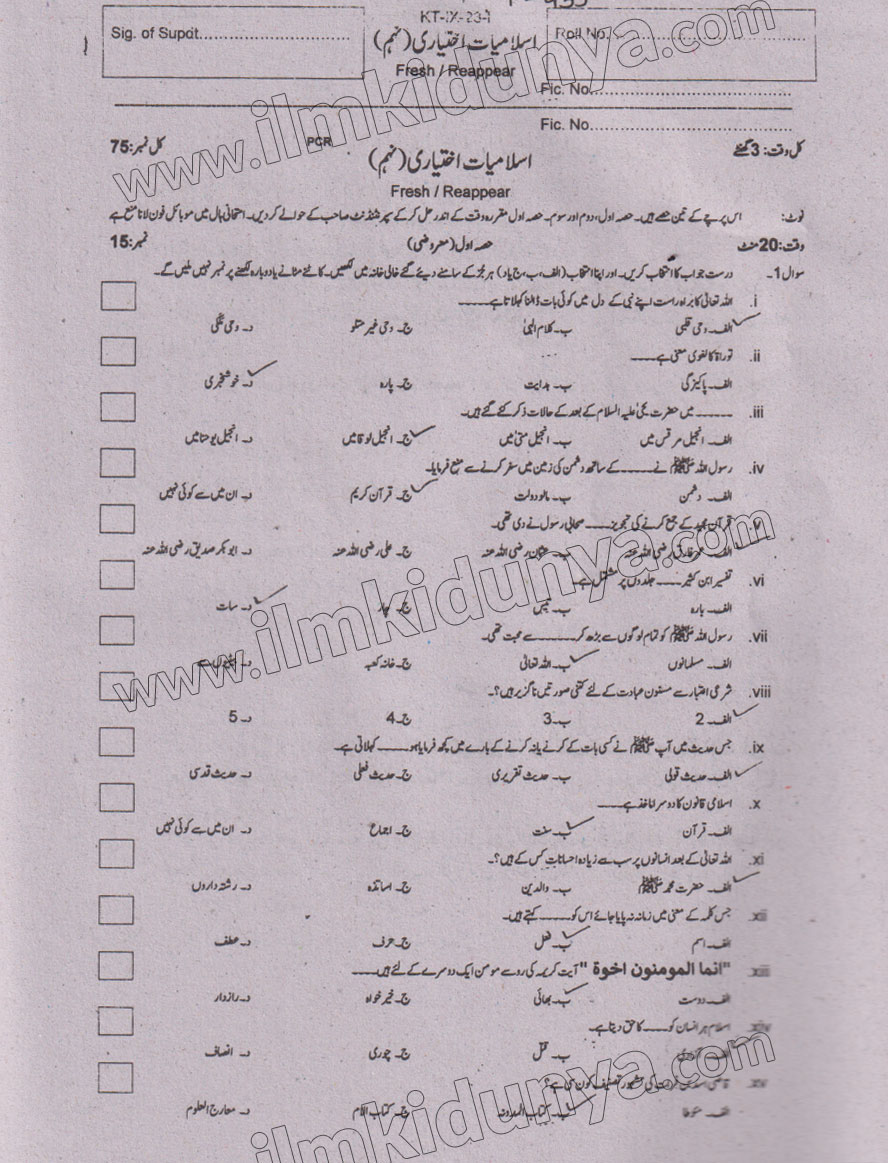 KT-IX-23-1
Sig. of Supdt.
اسلامیات اختیاری (نہم)
Roll No.
Fresh / Reappear
Fic. No.
Fic. No.
کل وقت: 3 گھنٹے
PCR
کل نمبر: 75
اسلامیات اختیاری (نہم)
Fresh / Reappear
نوٹ: اس پرچے کے تین حصے ہیں۔ حصہ اول، دوم اور سوم۔ حصہ اول مقررہ وقت کے اندر حل کر کے سپرنٹنڈنٹ صاحب کے حوالے کر دیں۔ امتحانی ہال میں موبائل فون لانا منع ہے
وقت: 20 منٹ حصہ اول (معروضی) نمبر: 15
سوال 1۔ درست جواب کا انتخاب کریں۔ اور اپنا انتخاب (الف، ب، ج یا د) ہر جُز کے سامنے دیئے گئے خالی خانہ میں لکھیں۔ کاٹنے مٹانے یا دوبارہ لکھنے پر نمبر نہیں ملیں گے۔
i. اللہ تعالیٰ کا براہ راست اپنے نبی کے دل میں کوئی بات ڈالنا کہلاتا ہے۔۔۔۔۔
الف۔ وحی قلبی ب۔ کلام الٰہی ج۔ وحی غیر متلو د۔ وحی ملکی
ii. توراۃ کا لغوی معنی ہے۔۔۔۔
الف۔ پاکیزگی ب۔ ہدایت ج۔ پارہ د۔ خوشخبری
iii. ۔۔۔۔۔۔ میں حضرت یحییٰ علیہ السلام کے بعد کے حالات ذکر کئے گئے ہیں۔
الف۔ انجیل مرقس میں ب۔ انجیل متیٰ میں ج۔ انجیل لوقا میں د۔ انجیل یوحنا میں
iv. رسول اللہ ﷺ نے۔۔۔۔۔ کے ساتھ دشمن کی زمین میں سفر کرنے سے منع فرمایا۔
الف۔ دشمن ب۔ مال و دولت ج۔ قرآن کریم د۔ ان میں سے کوئی نہیں
v. قرآن مجید کے جمع کرنے کی تجویز۔۔۔۔ صحابی رسول نے دی تھی۔
الف۔ عمر فاروق رضی اللہ عنہ ب۔ عثمان رضی اللہ عنہ ج۔ علی رضی اللہ عنہ د۔ ابو بکر صدیق رضی اللہ عنہ
vi. تفسیر ابن کثیر۔۔۔۔ جلدوں پر مشتمل ہے۔
الف۔ بارہ ب۔ تیس ج۔ چار د۔ سات
vii. رسول اللہ ﷺ کو تمام لوگوں سے بڑھ کر۔۔۔۔۔ سے محبت تھی۔
الف۔ مسلمانوں ب۔ اللہ تعالیٰ ج۔ خانہ کعبہ د۔
viii. شرعی اعتبار سے مسنون عبادت کے لئے کتنی صورتیں ناگزیر ہیں؟۔
الف۔ 2 ب۔ 3 ج۔ 4 د۔ 5
ix. جس حدیث میں آپ ﷺ نے کسی بات کے کرنے یا نہ کرنے کے بارے میں کچھ فرمایا ہو۔۔۔۔۔ کہلاتی ہے۔
الف۔ حدیث قولی ب۔ حدیث تقریری ج۔ حدیث فعلی د۔ حدیث قدسی
x. اسلامی قانون کا دوسرا ماخذ ہے۔۔۔۔
الف۔ قرآن ب۔ سنت ج۔ اجماع د۔ ان میں سے کوئی نہیں
xi. اللہ تعالیٰ کے بعد انسانوں پر سب سے زیادہ احسانات کس کے ہیں؟۔
الف۔ حضرت محمد ﷺ ب۔ والدین ج۔ اساتذہ د۔ رشتہ داروں
xii. جس کلمہ کے معنی میں زمانہ نہ پایا جائے اس کو۔۔۔۔۔ کہتے ہیں۔
الف۔ اسم ب۔ فعل ج۔ حرف د۔ عطف
xiii. "انما المومنون اخوة" آیت کریمہ کی رو سے مومن ایک دوسرے کے لئے ہیں۔۔۔۔
الف۔ دوست ب۔ بھائی ج۔ خیر خواہ د۔ رازدار
xiv. اسلام ہر انسان کو۔۔۔۔ کا حق دیتا ہے۔
الف۔ ب۔ قتل ج۔ چوری د۔ انصاف
xv. قاضی کی مشہور تصنیف کون سی ہے؟
الف۔ موطا ب۔ کتاب المدونہ ج۔ کتاب الام د۔ معارج العلوم
www.ilmkidunya.com
www.ilmkidunya.com
www.ilmkidunya.com